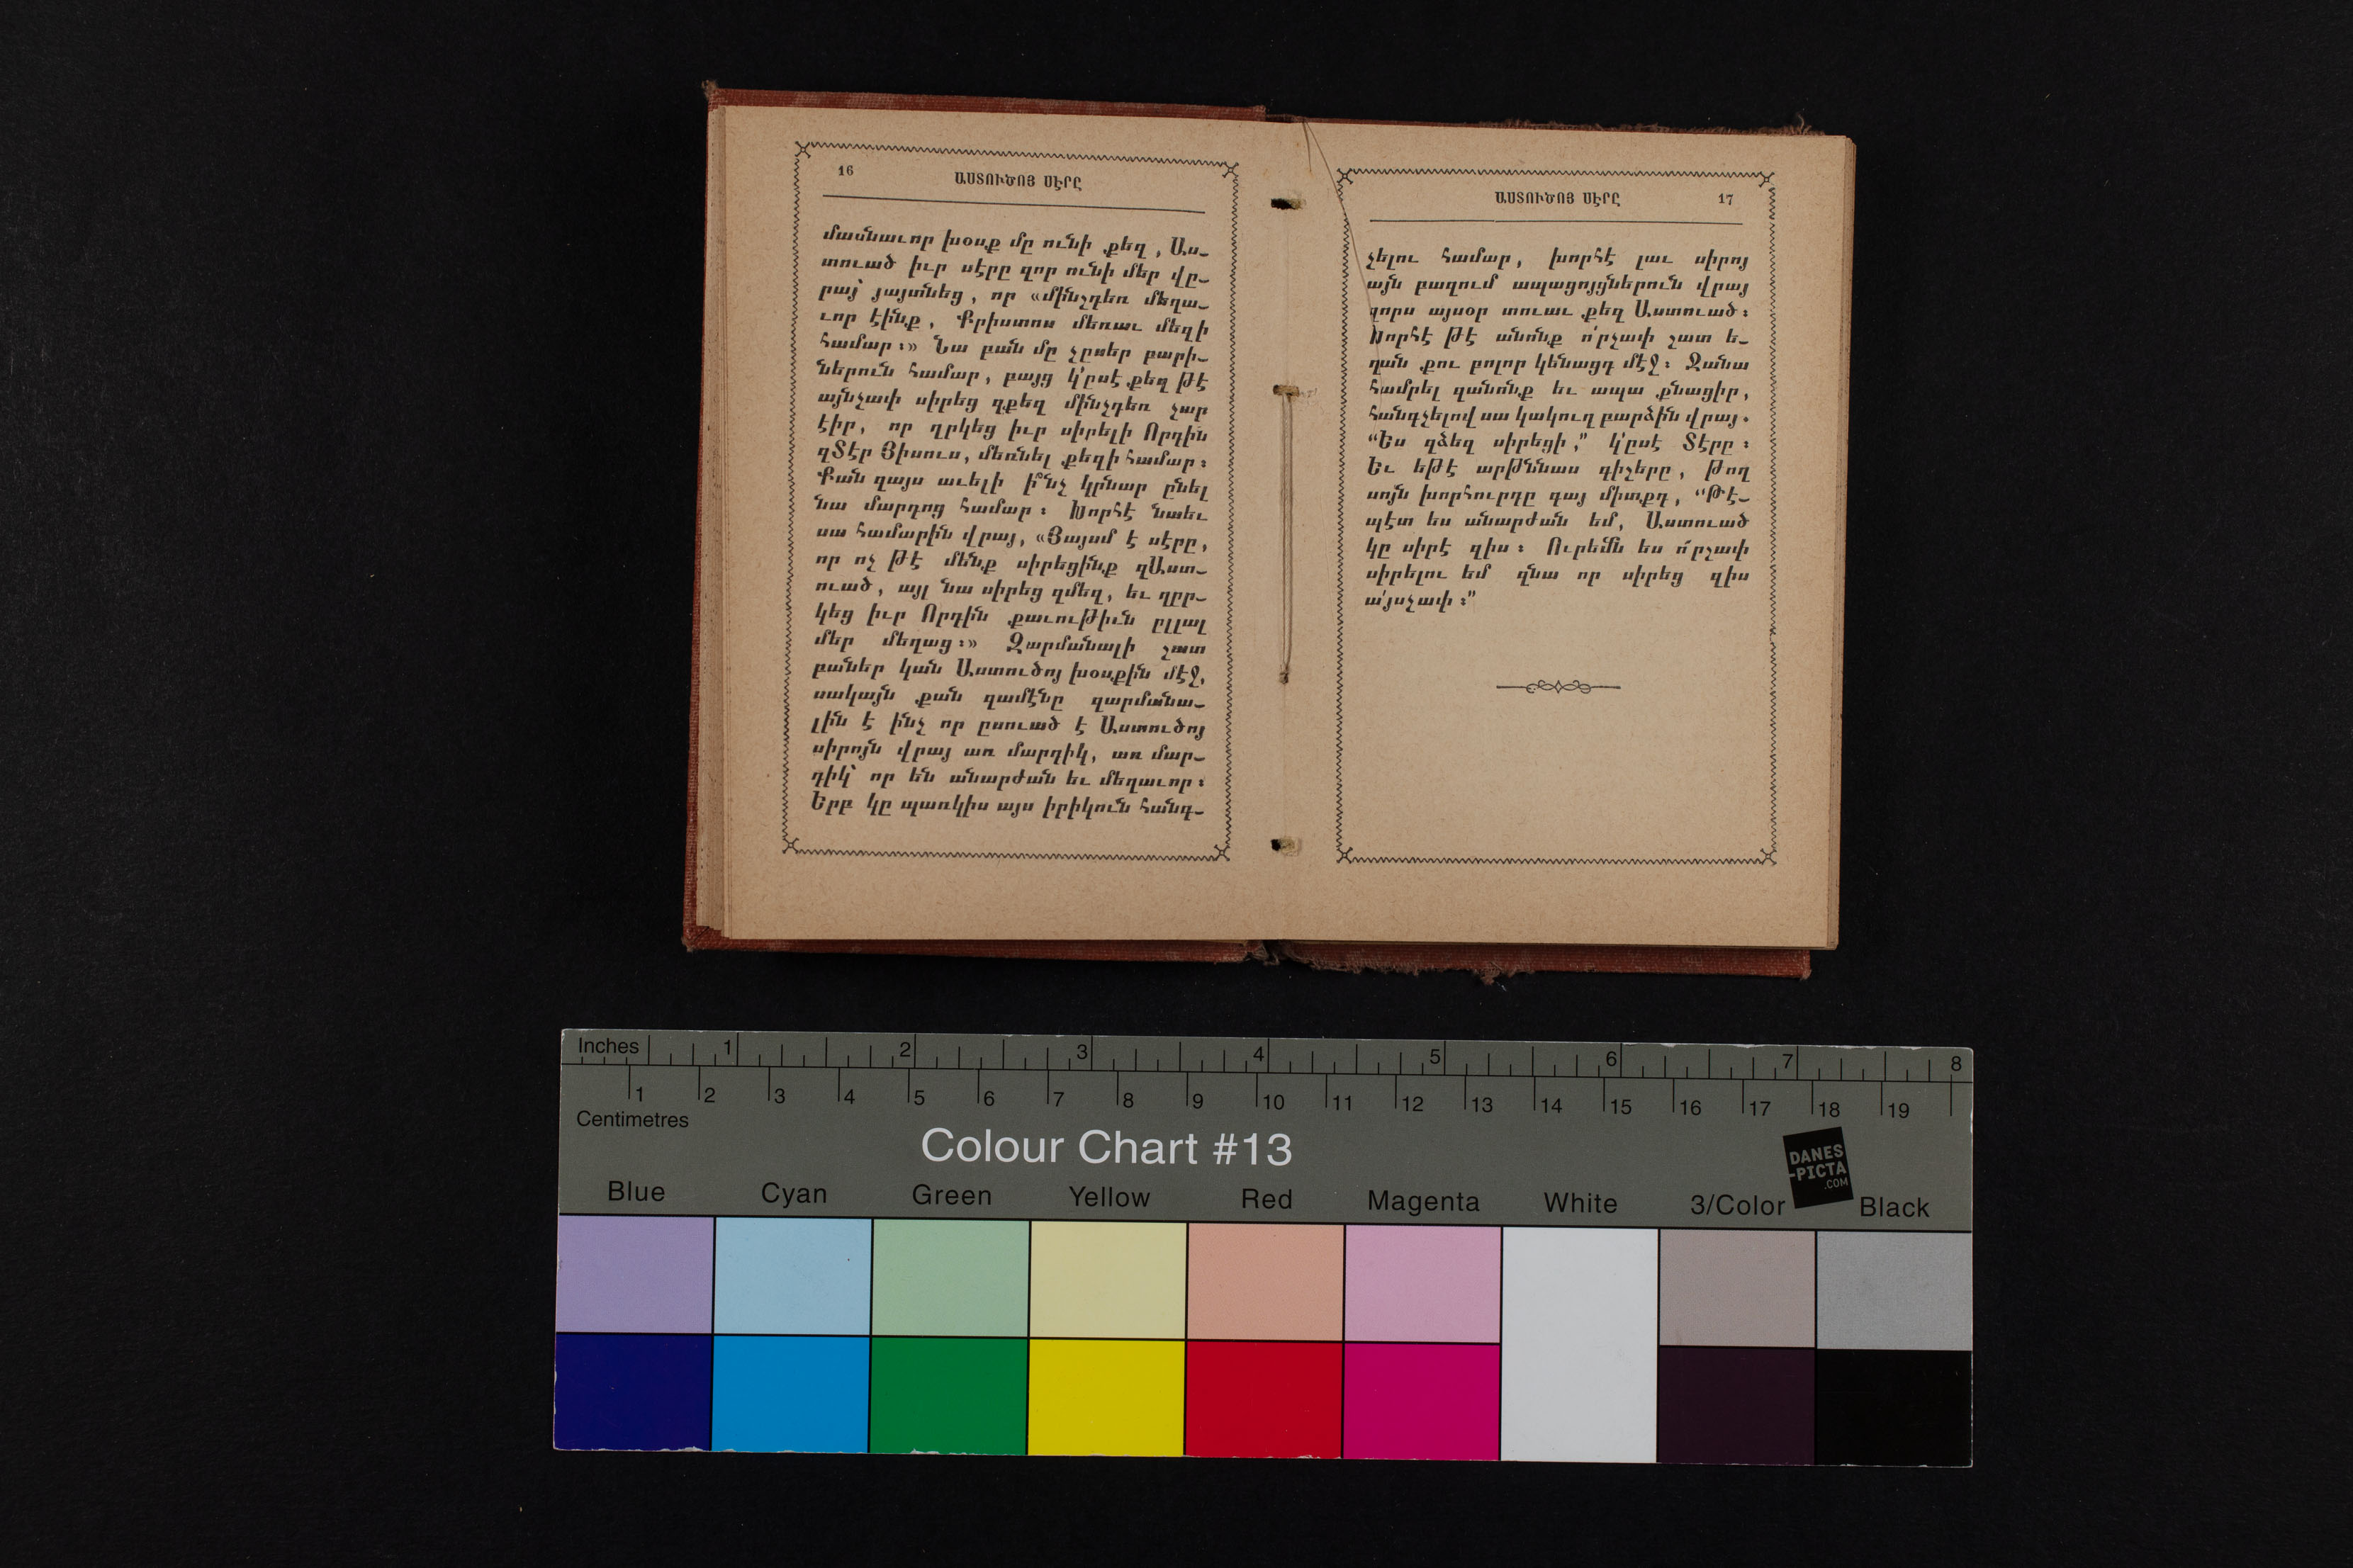 16
ԱՍՏՈՒԾՈՅ ՍԷՐԸ
մասնաւոր խօսք մը ունի քեզ, Աս–
տուած իւր սէրը զոր ունի մեր վը–
րայ՝ յայտնեց, որ «մինչդեռ մեղա–
ւոր էինք, Քրիստոս մեռաւ մեզի
համար։» Նա բան մը չըսեր բարի–
ներուն համար, բայց կ՚ըսէ քեզ թէ
այնչափ սիրեց զքեզ մինչդեռ չար
էիր, որ ղրկեց իւր սիրելի Որդին
զՏէր Յիսուս, մեռնել քեզի համար։
Քան զայս աւելի ի՞նչ կրնար ընել
նա մարդոց համար։ Խորհէ նաեւ
սա համարին վրայ, «Յայսմ է սէրը,
որ ոչ թէ մենք սիրեցինք զԱստ–
ուած, այլ նա սիրեց զմեզ, եւ ղըր–
կեց իւր Որդին քաւութիւն ըլլալ
մեր մեղաց։» Զարմանալի շատ
բաներ կան Աստուծոյ խօսքին մէջ,
սակայն քան զամէնը զարմանա–
լին է ինչ որ ըսուած է Աստուծոյ
սիրոյն վրայ առ մարդիկ, առ մար–
դիկ՝ որ են անարժան եւ մեղաւոր։
Երբ կը պառկիս այս իրիկուն հանգ–
ԱՍՏՈՒԾՈՅ ՍԷՐԸ
17
չելու համար, խորհէ լաւ սիրոյ
այն բազում ապացոյցներուն վրայ
զորս այսօր տուաւ քեզ Աստուած։
Խորհէ թէ անոնք ո՛րչափ շատ ե–
ղան քու բոլոր կենացդ մէջ։ Ջանա
համրել զանոնք եւ ապա քնացիր,
հանգչելով սա կակուղ բարձին վրայ.
“Ես զձեզ սիրեցի,” կ՚ըսէ Տէրը։
Եւ եթէ արթննաս գիշերը, թող
սոյն խորհուրդը գայ միտքդ, “Թէ–
պէտ ես անարժան եմ, Աստուած
կը սիրէ զիս։ Ուրեմն ես ո՛րչափ
սիրելու եմ զնա որ սիրեց զիս
ա՛յսչափ։”
Inches 1 2 3 4 5 6 7 8
1 2 3 4 5 6 7 8 9 10 11 12 13 14 15 16 17 18 19
Centimetres
Colour Chart #13
DANES
-PICTA
.COM
Blue Cyan Green Yellow Red Magenta White 3/Color Black